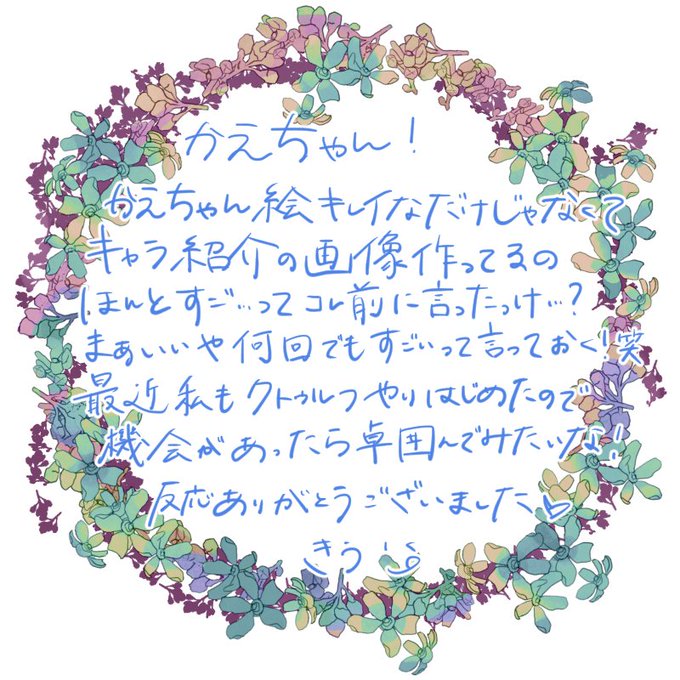 かえちゃん!
かえちゃん絵キレイなだけじゃなくて
キャラ紹介の画像作ってるの
ほんとすご…ってコレ前に言ったっけ…?
まぁいいや何回でもすごいって言っておく!笑
最近私もクトゥルフやりはじめたので
機会があったら卓囲んでみたいな!
反応ありがとうございました♡
きう